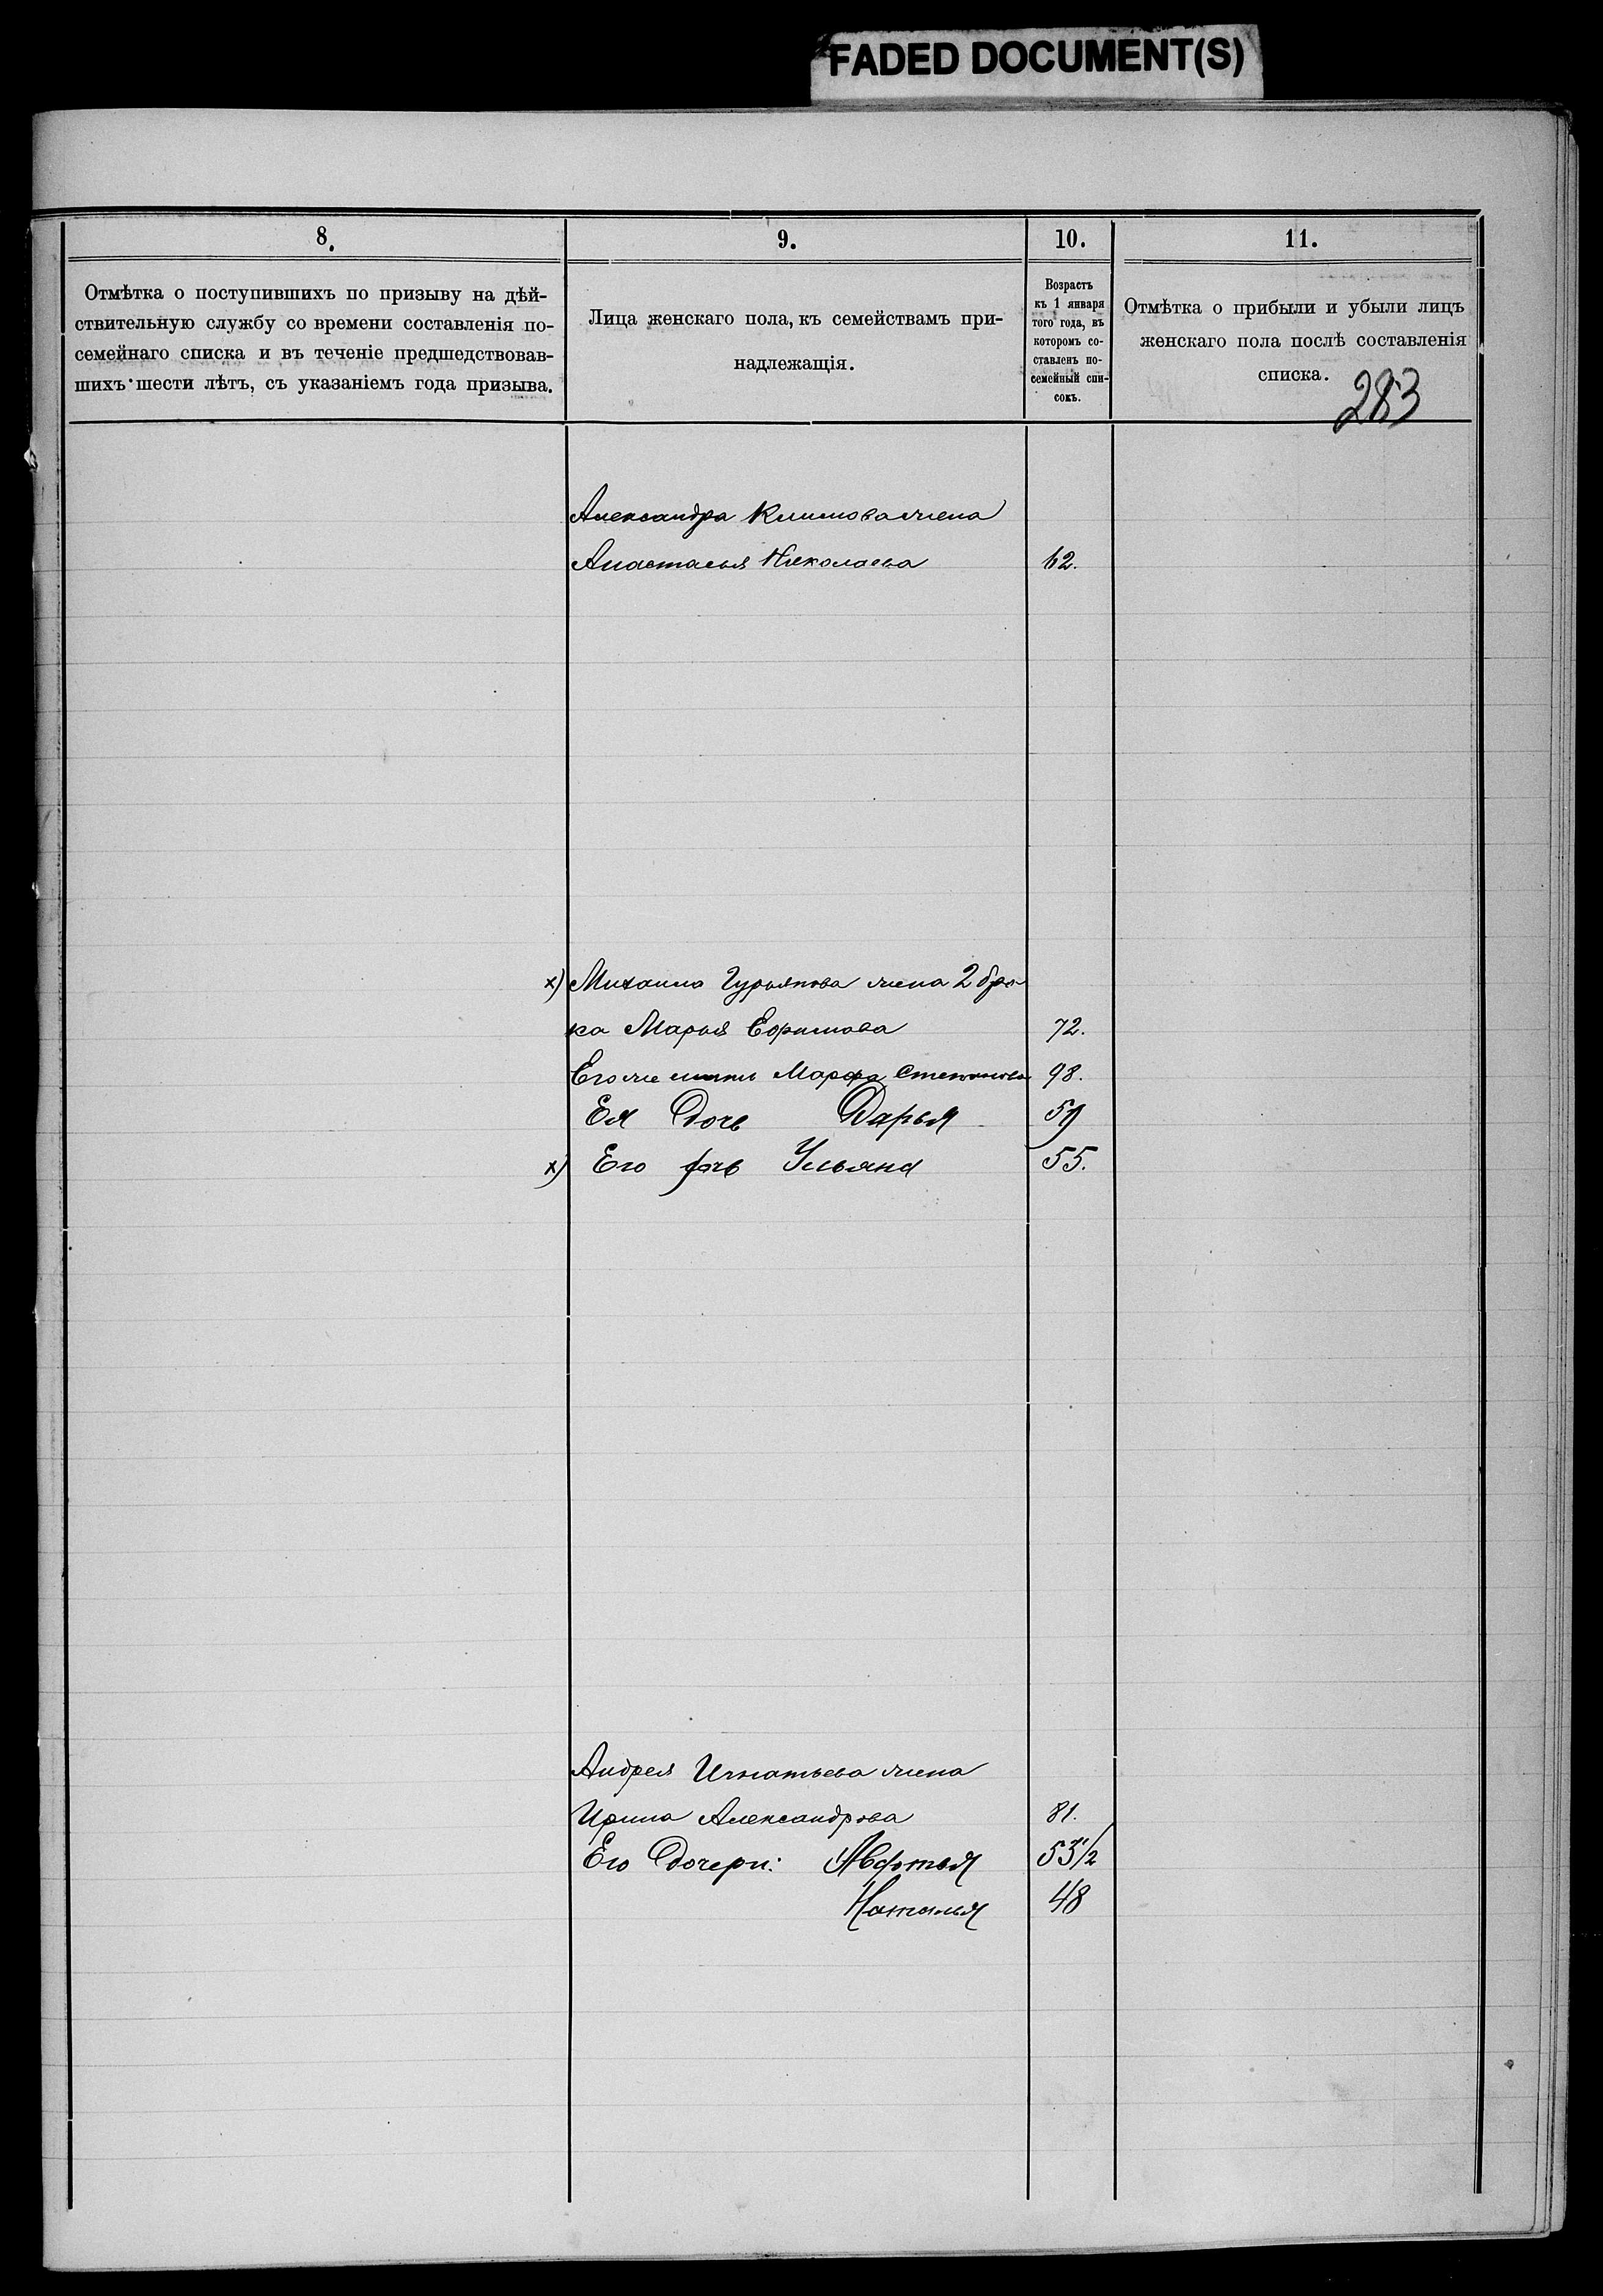 FADED DOCUMENT(S)
8.
9.
10.
11.
Отмѣтка о поступившихъ по призыву на дѣй-
ствительную службу со времени составленія по-
семейнаго списка и въ теченіе предшедствовав-
шихъ шести лѣтъ, съ указаніемъ года призыва.
Лица женскаго пола, къ семействамъ при-
надлежащія.
Возрастъ
къ 1 января
того года, въ
которомъ со-
ставленъ по-
семейный спи-
сокъ.
Отмѣтка о прибыли и убыли лицъ
женскаго пола послѣ составленія
списка.
283
Александра Климова жена
Анастасья Николаева 62.
х) Михаила Гурьянова жена 2 бра-
ка Марья Ефимова 72.
Его же мать Марфа Степанова 98.
Ея Дочь Дарья 59
х) Его дочь Ульяна 55.
Андрея Игнатьева жена
Ирина Александрова 81.
Его Дочери: Авдотья 53 1/2
Наталья 48